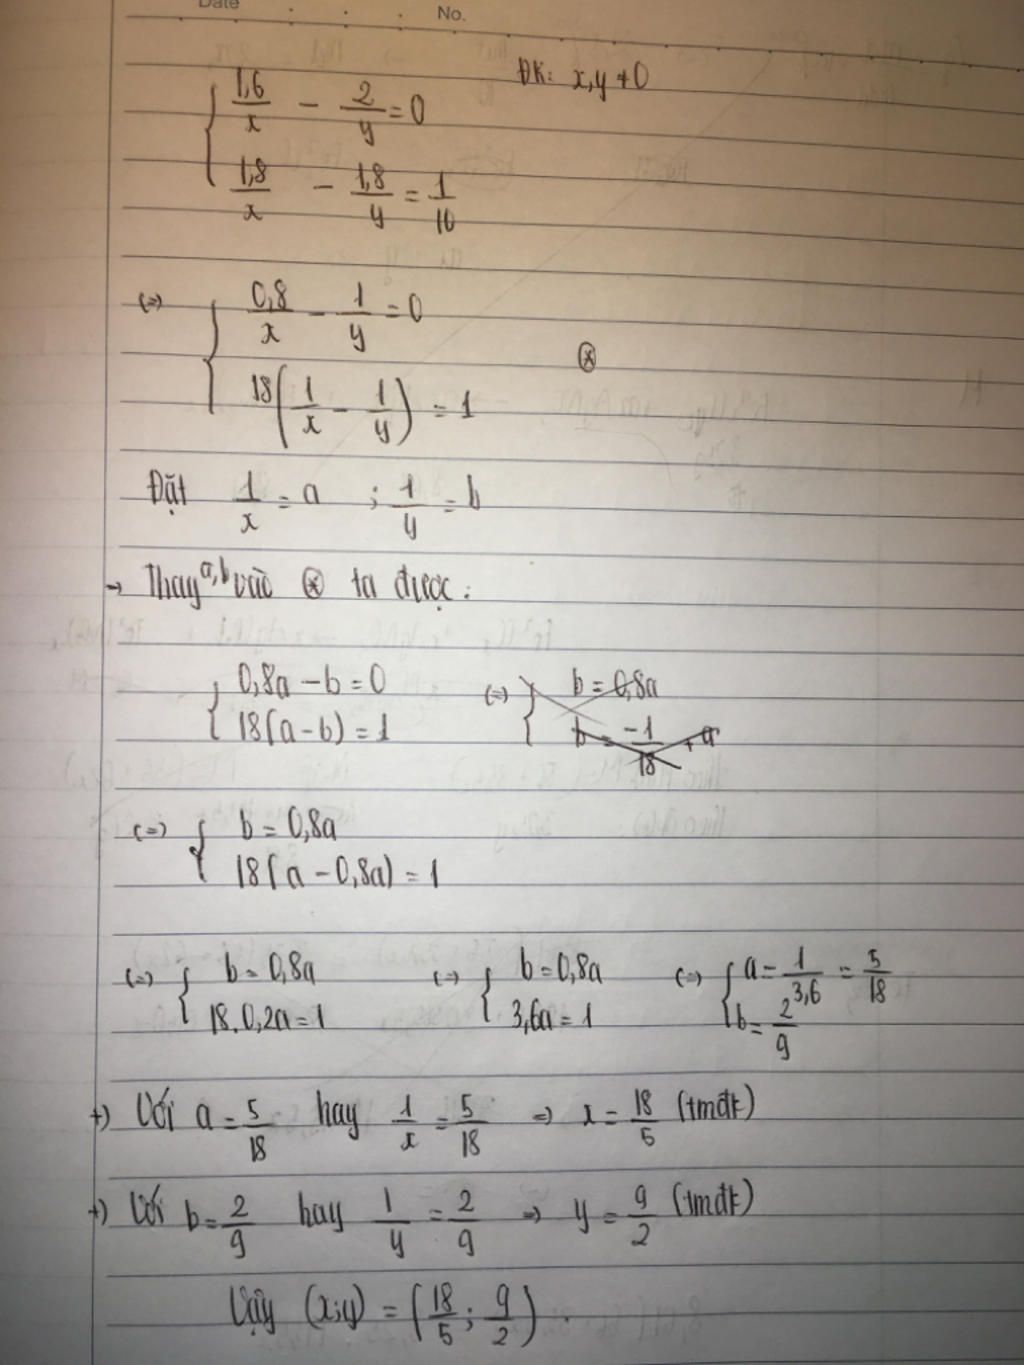 Date No.
ĐK: x,y ≠ 0
{ 1,6/x - 2/y = 0
1,8/x - 1,8/y = 1/10
(=) { 0,8/x - 1/y = 0
18(1/x - 1/y) = 1 ⊛
Đặt 1/x = a ; 1/y = b
→ Thay a,b vào ⊛ ta được:
{ 0,8a - b = 0 (=) { b = 0,8a
18(a - b) = 1 b = -1/18 + a
(=) { b = 0,8a
18(a - 0,8a) = 1
(=) { b = 0,8a (=) { b = 0,8a (=) { a = 1/3,6 = 5/18
18.0,2a = 1 3,6a = 1 b = 2/9
+) Với a = 5/18 hay 1/x = 5/18 => x = 18/5 (tmđk)
+) Với b = 2/9 hay 1/y = 2/9 => y = 9/2 (tmđk)
Vậy (x;y) = (18/5; 9/2).